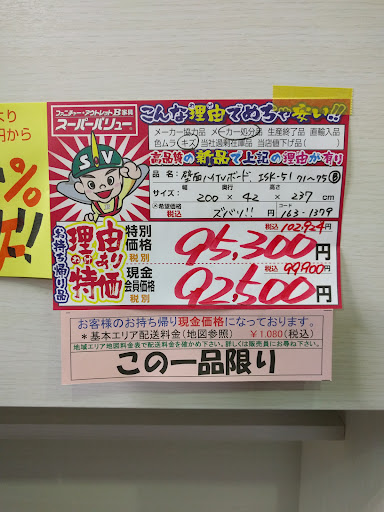 より
円から
%
!!
ファニチャー・アウトレットB家具
スーパーバリュー
SV
こんな理由でめちゃ安い!!
メーカー協力品 メーカー処分品 生産終了品 直輸入品
色ムラ キズ 当社過剰在庫品 当店値下げ品( )
高品質の新品で上記の理由が有り
品名: 壁面ハイリボード ISK-51 71~75 B
サイズ: 幅 奥行 高さ
200 × 42 × 237 cm
希望価格 税込 ズバリ!! 円 コード 163-1379
お持ち帰り品
理由有り特価
わけあり
特別価格 税別 95,300円
税込 102,924円
現金会員価格 税別 92,500円
税込 99,900円
お客様のお持ち帰り現金価格になっております。
*基本エリア配送料金(地図参照) ¥1,080(税込)
地域エリア地図料金表で配送料金を確かめ下さい。詳しくは販売員にお尋ね下さい。
この一品限り